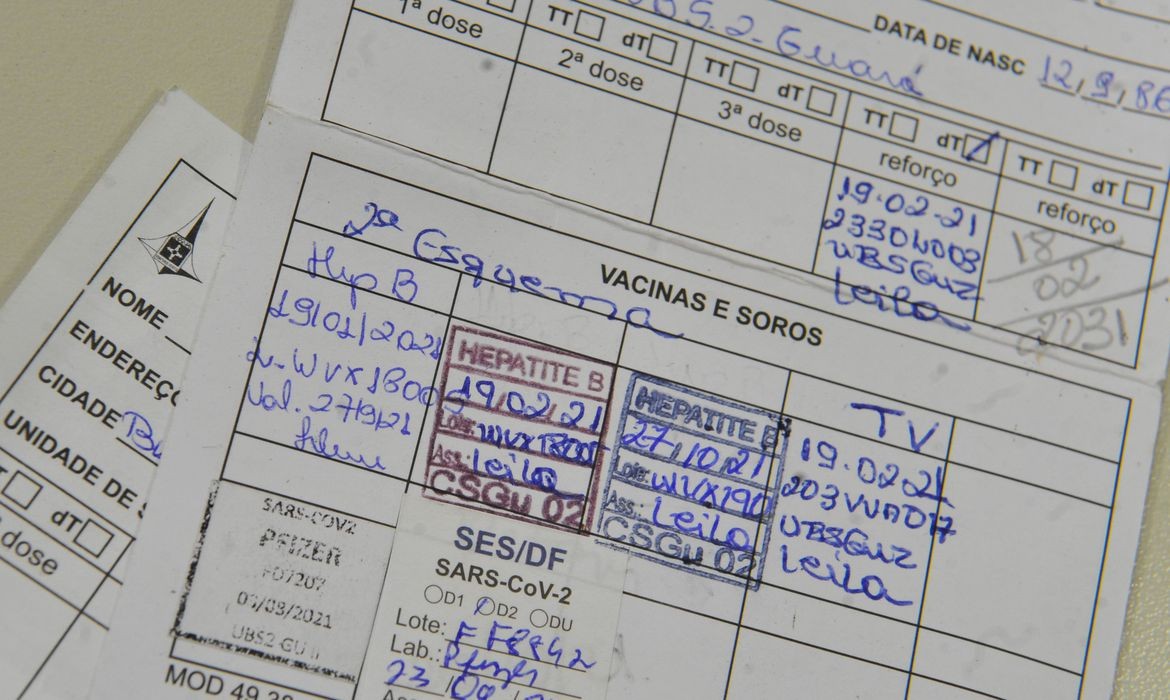 UBS.2-Guará
DATA DE NASC 12,9,86
TT dT
1ª dose
TT dT
2ª dose
TT dT
3ª dose
TT dT
reforço
19.02.21
UBSGU2
Leila
TT dT
reforço
18
02
2031
VACINAS E SOROS
2ª Esquema
Hep B
19/01/2021
Val. 27/9/21
HEPATITE B
19/02/21
Lote:
Ass.: Leila
CSGu 02
HEPATITE B
27/10/21
Lote: WVX190
Ass.: Leila
CSGu 02
TV
19.02.21
UBSGU2
Leila
SARS-COV2
PFIZER
FD7207
UBS2 GU
SES/DF
SARS-CoV-2
D1 D2 DU
Lote: FF8842
Lab.: Pfizer
MOD 49
NOME
ENDEREÇ
CIDADE
UNIDADE DE S
dT
dose